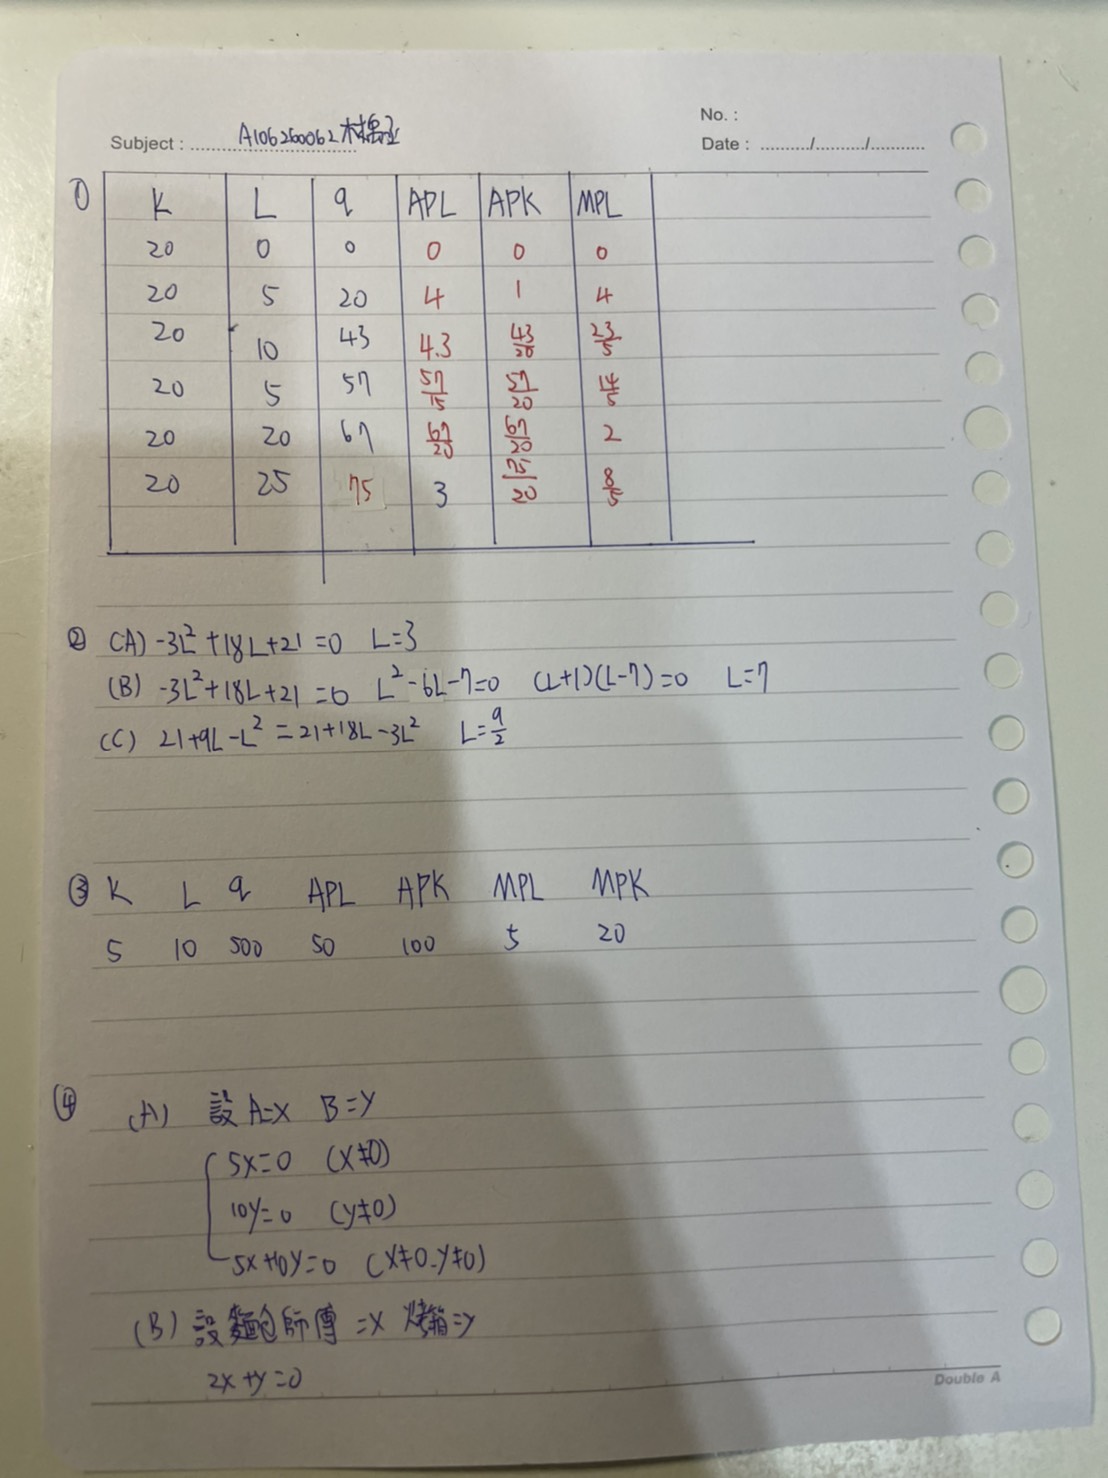 No. :
Subject : A106260062
Date : ........./........./.........
① K L q APL APK MPL
20 0 0 0 0 0
20 5 20 4 1 4
20 10 43 4.3 43/20 23/5
20 5 57 57/15 57/20 14/5
20 20 67 67/20 67/20 2
20 25 75 3 75/20 8/5
② (A) -3L²+18L+21=0 L=3
(B) -3L²+18L+21=0 L²-6L-7=0 (L+1)(L-7)=0 L=7
(C) 21+9L-L²=21+18L-3L² L=9/2
③ K L q APL APK MPL MPK
5 10 500 50 100 5 20
④ (A) 設A=X B=Y
5X=0 (X≠0)
10Y=0 (Y≠0)
5X+10Y=0 (X≠0.Y≠0)
(B) 設麵包師傅=X 烤箱=Y
2X+Y=0
Double A